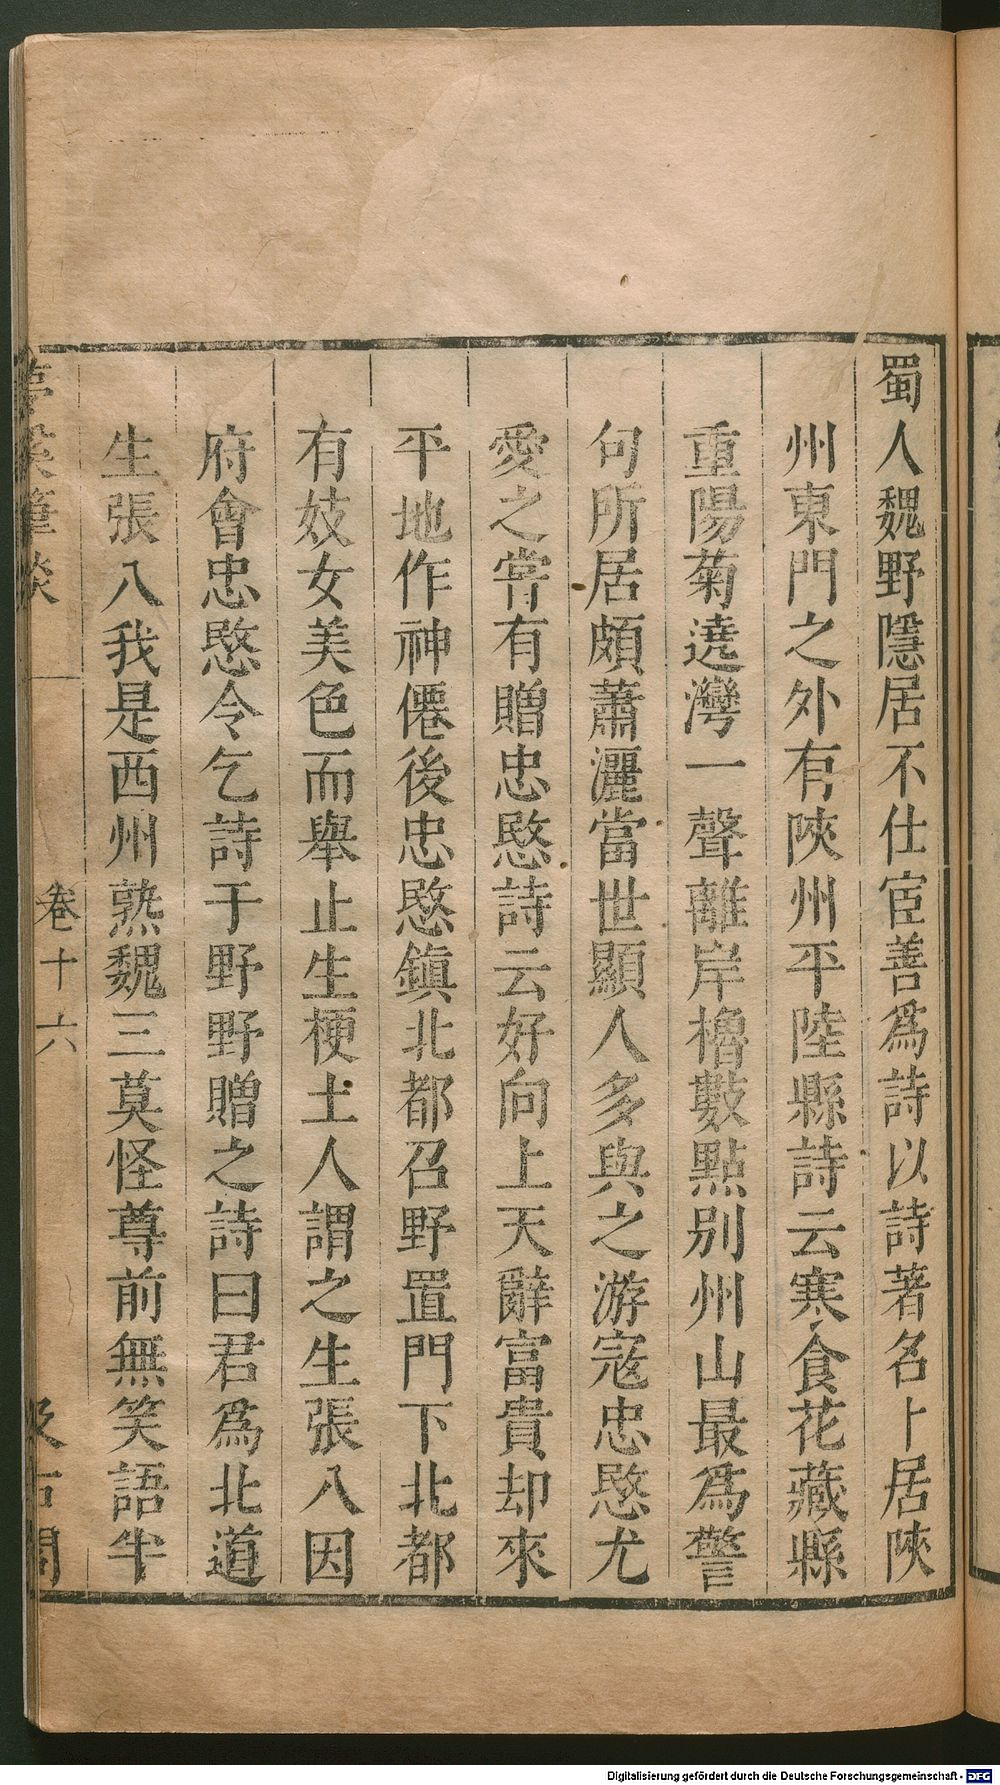 蜀人魏野隱居不仕宦善爲詩以詩著名卜居陜
州東門之外有陜州平陸縣詩云寒食花藏縣
重陽菊遶灣一聲離岸櫓數點別州山最爲警
句所居頗蕭灑當世顯人多與之游寇忠愍尤
愛之嘗有贈忠愍詩云好向上天辭富貴却來
平地作神僊後忠愍鎮北都召野置門下北都
有妓女美色而舉止生梗土人謂之生張八因
府會忠愍令乞詩于野野贈之詩曰君爲北道
生張八我是西州熟魏三莫怪尊前無笑語半
夢溪筆談 卷十六 汲古閣
Digitalisierung gefördert durch die Deutsche Forschungsgemeinschaft - DFG